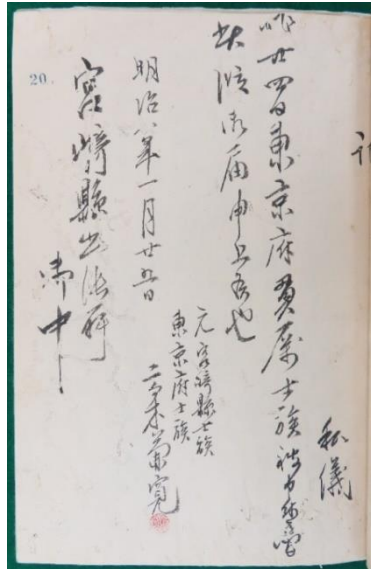 私儀
昨廿四日東京府貫属士族被仰付候間
此段御届申上候也
明治八年一月廿五日
元宮崎縣士族
東京府士族
高木兼寛
宮崎縣出張所
御中
20.